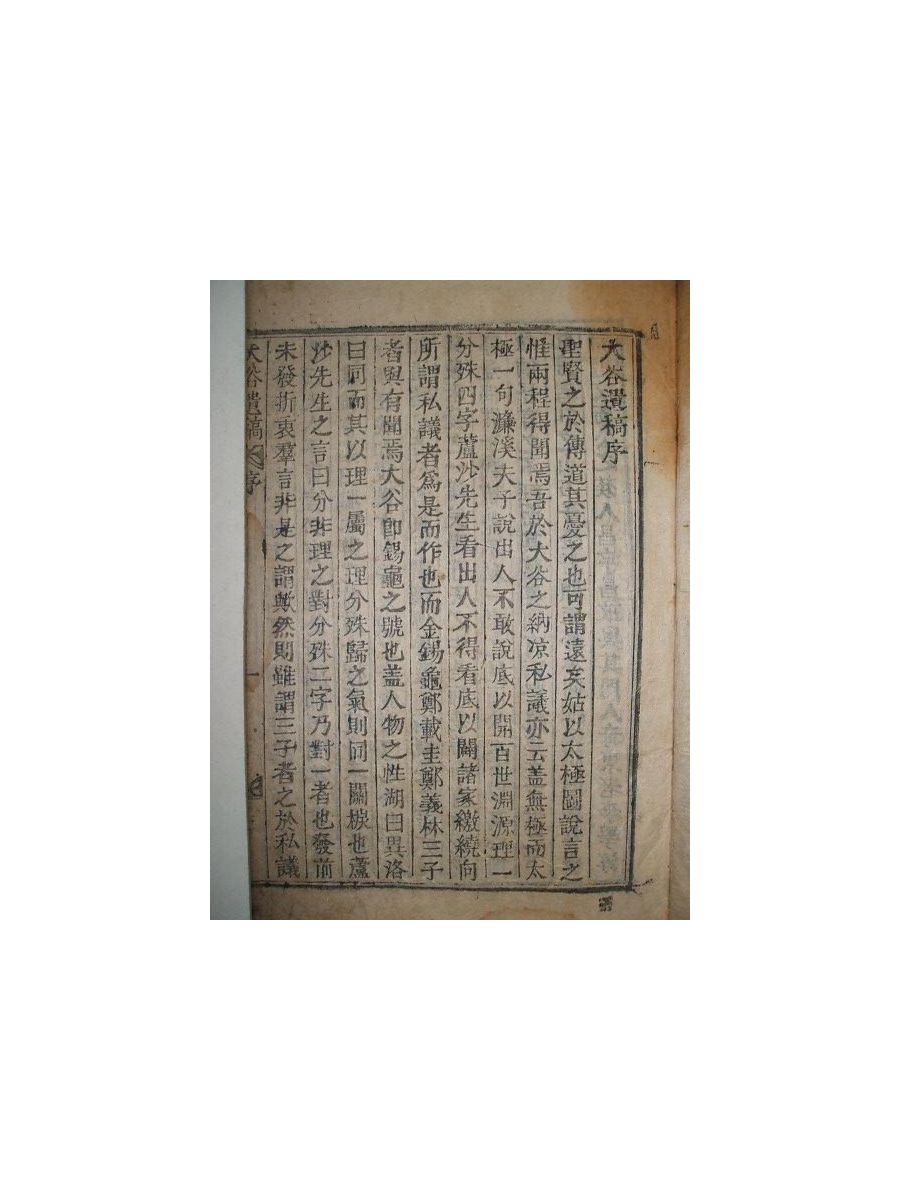 大谷遺稿序
聖賢之於傳道其憂之也可謂遠矣姑以太極圖說言之
惟兩程得聞焉吾於大谷之納凉私議亦云盖無極而太
極一句濂溪夫子說出人不敢說底以開百世淵源理一
分殊四字蘆沙先生看出人不得看底以闢諸家繳繞向
所謂私議者爲是而作也而金錫龜鄭載圭鄭義林三子
者與有聞焉大谷卽錫龜之號也盖人物之性湖曰異洛
曰同而其以理一屬之理分殊歸之氣則同一關棙也蘆
沙先生之言曰分非理之對分殊二字乃對一者也發前
未發折衷羣言非是之謂歟然則雖謂三子者之於私議
大谷遺稿 序
一